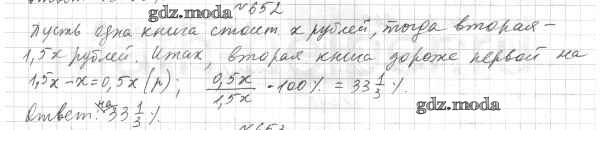 gdz.moda №652
Пусть одна книга стоит x рублей, тогда вторая –
1,5x рублей. Итак, вторая книга дороже первой на
1,5x-x=0,5x (р); 0,5x/1,5x · 100% = 33 1/3 %.
gdz.moda
Ответ: на 33 1/3 %.
gdz.moda